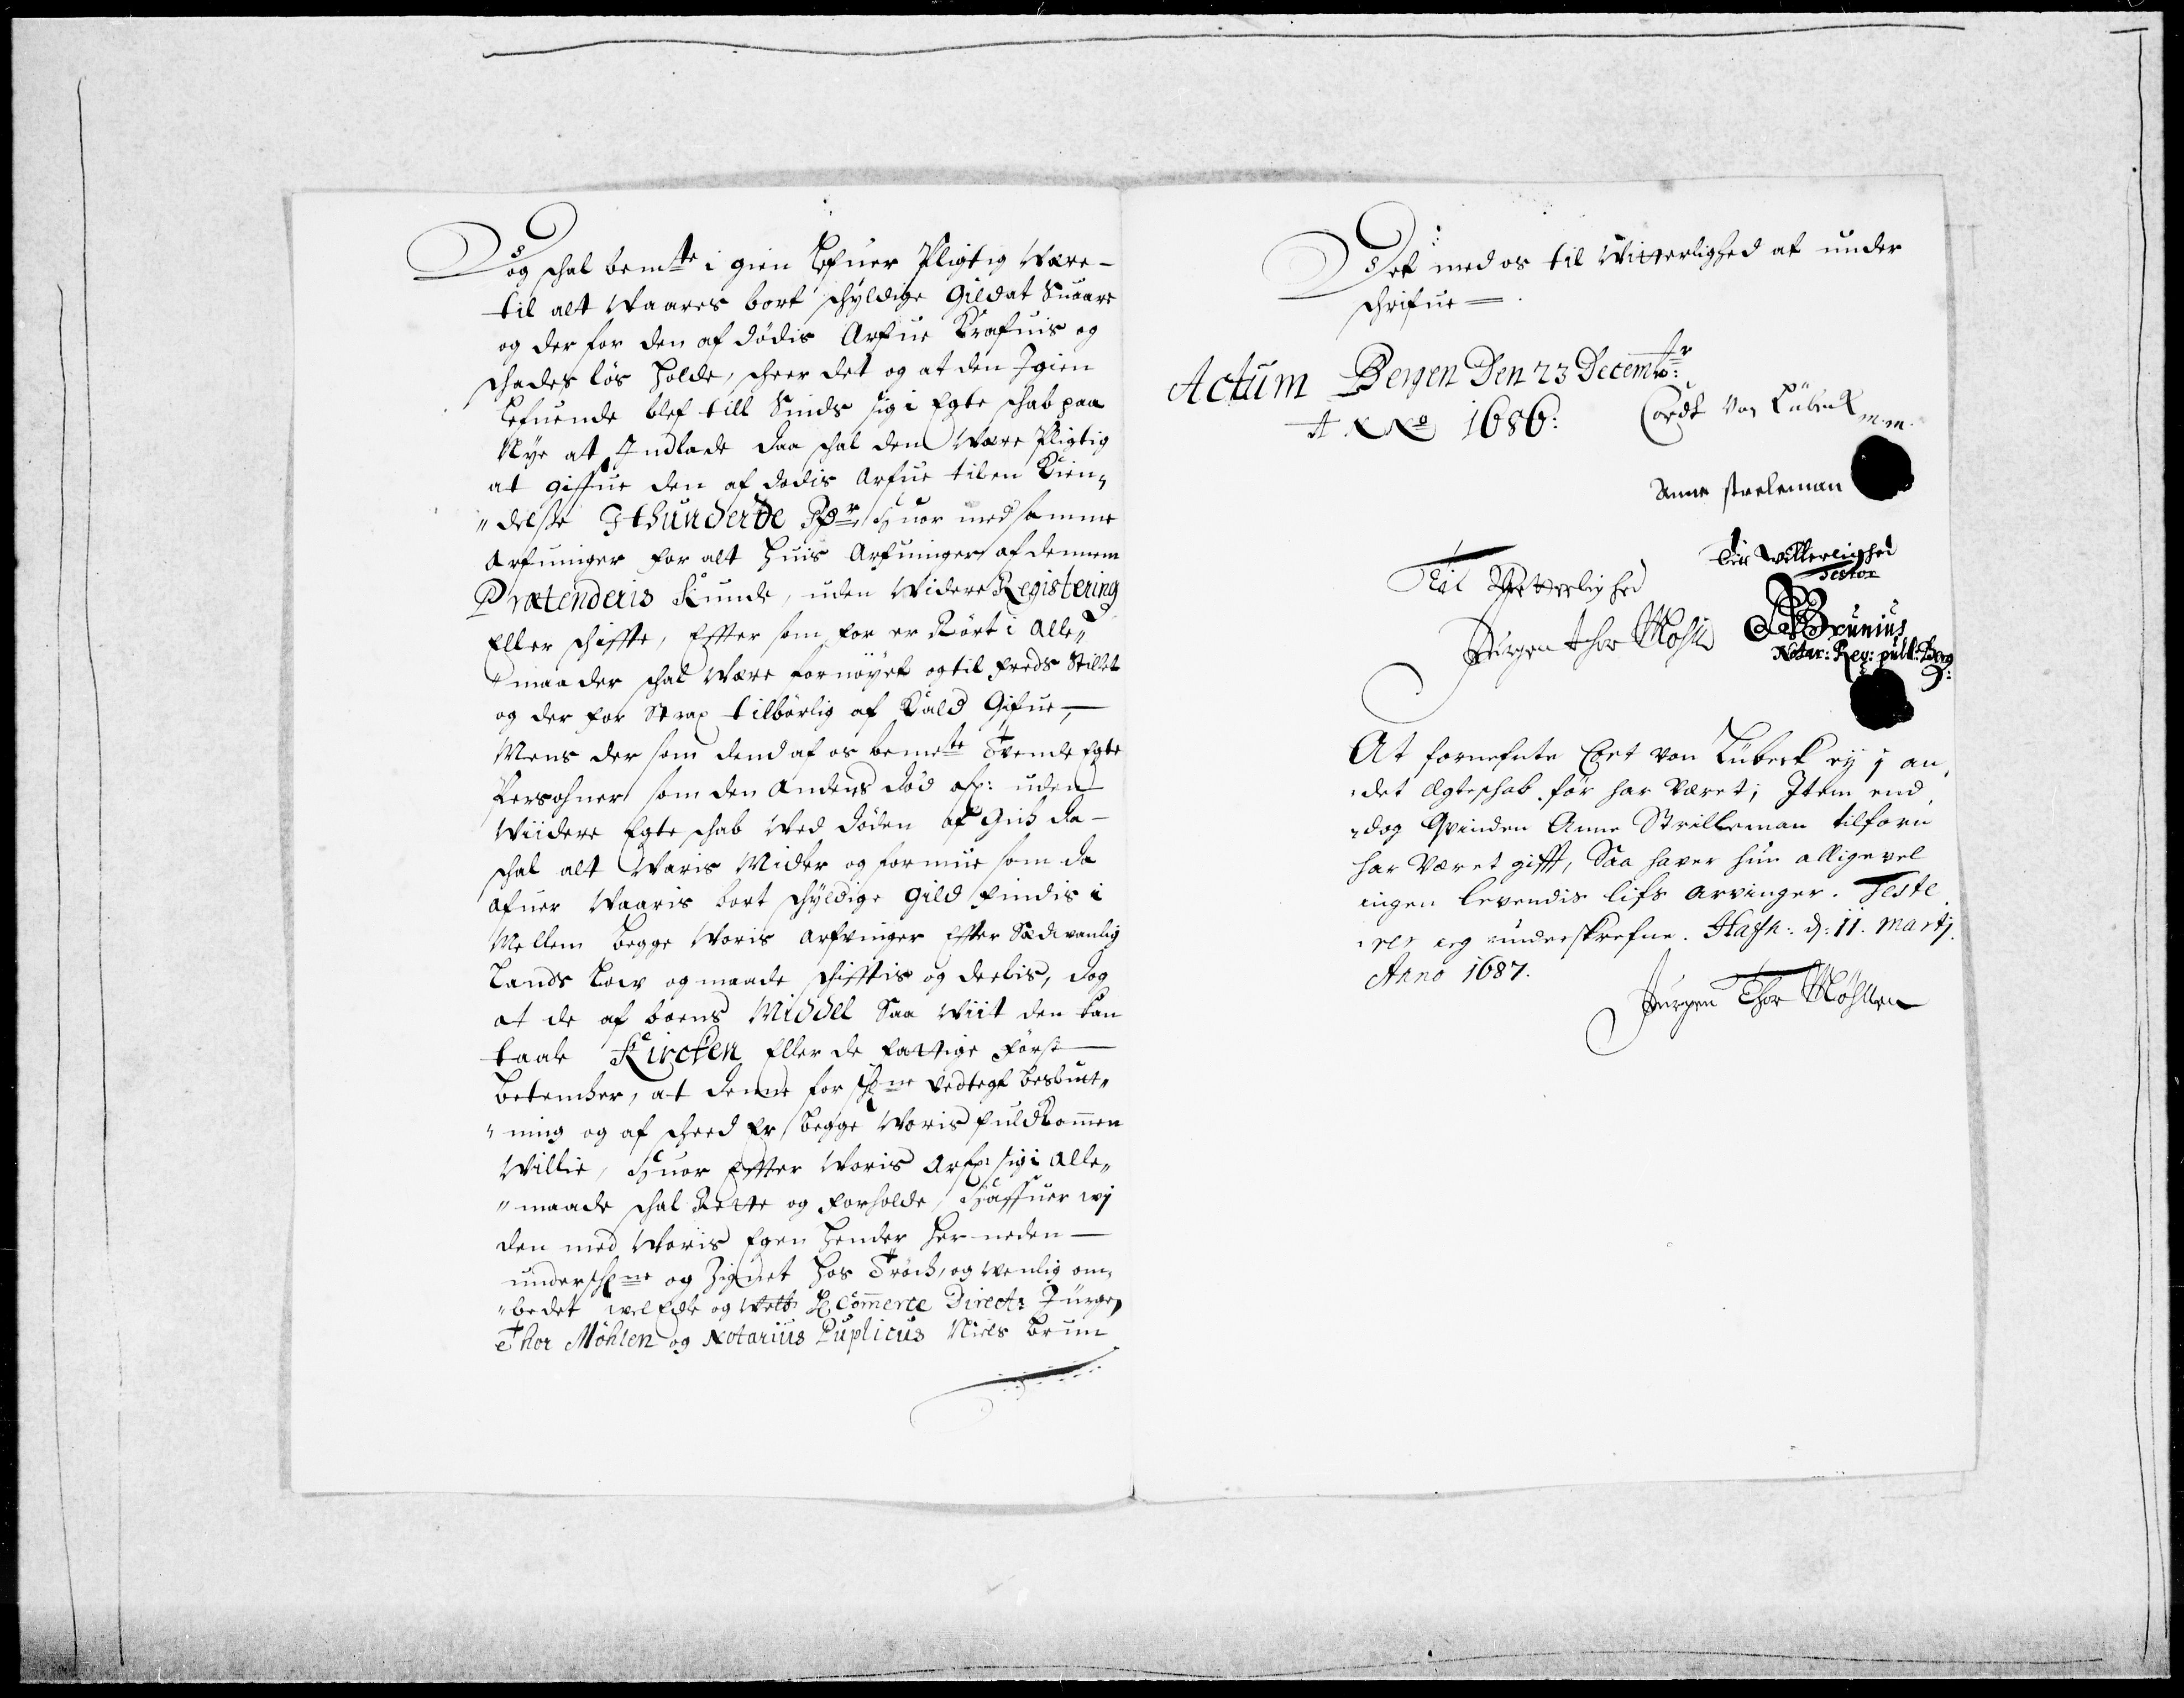 Dog schal bemte i gien Lefuer Pligtig Være
til alt Waares bort schyldige Gield at Suaare
og der for den af dödis Arfue Krafuis og
schades lös holde, scheer det og at den Igien
Lefuende blef till Sinds sig i Egte schab paa
Nye at Indlade daa schal den Være Pligtig
at giffue den af dödis Arfue til en Kien„
„delse Ithunderde Rdr Huor med samme
Arfuinger for alt huis Arfuinger af dennem
Prætenderis Kunde, uden Widere Registering
Eller schiffte, Effter som for er Rört i Alle„
„maader schal Være fornöyet og til freds Stillet
og der for Strax tilbörlig af Kald Gifue,
Mens der som dend af os bemte Tvende Egte
Persohner som den Andens död uden
Wiidere Egte schab Wed döden af Gich da
schal alt Waris Midler og formue som da
ofuer Waaris bort schyldige Gield findis i
Mellem begge Woris Arfvinger Effter Sædvanlig
Lands Low og maade schifftis og deelis, dog
at de af boens Middel Saa Wiit den kan
taale Kircken Eller de fattige först
betencker, at denne for schne Vedtegt besluut„
„ning og af scheed Er begge Woris fuldkommen
Willie, Huor Effter Woris Arfv: sig i Alle„
„maade schal Rette og forholde, Haffuer wj
den med Woris Egen hender her neden
underschne og Zignet hos Tröch, og venlig om„
„bedet welEdle og Commerce Directr Jürgen
Thor Möhlen og Notarius Puplicus Niels Brun
Det med os til Witterlighed at under
schrifue
Actum Bergen Den 23 Decembr:
ANNo 1686:
Cordt von Lübeck
m.m.
Anne streleman
Til Vitterlighed
Jürgen thor Möhlen
Til Witterlighed
Testor
NBrunius
Notar: Reg: publ: Berg:
At fornefnte Cort von Lübeck ey j an„
„det ægteschab för har været; Item end„
„dog Qvinden Anne Strilleman tilforn
har været gifft, Saa haver hun alligevel
ingen levendis lifs arvinger. Teste„
„rer ieg underskrefne. Hafn: d: 11. Martj.
Anno 1687.
Jürgen Thor Möhlen